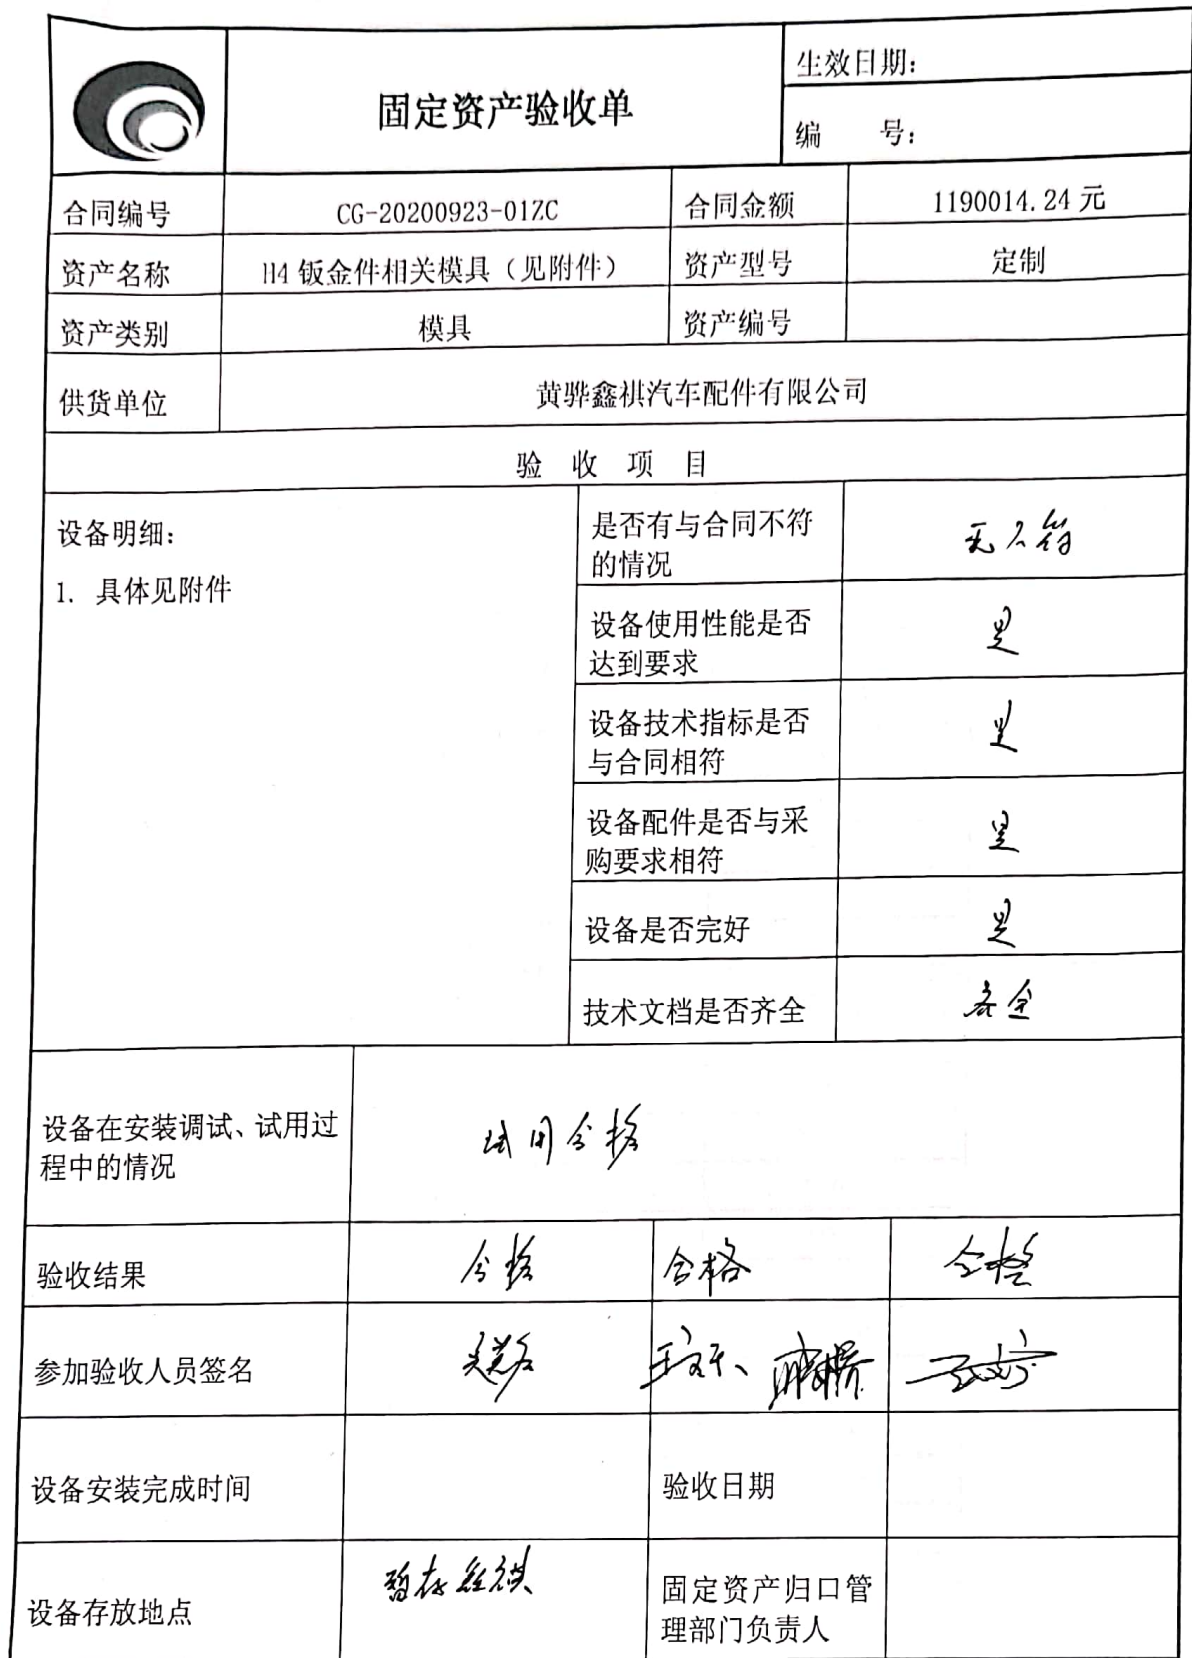 固定资产验收单
生效日期：
编 号：
合同编号 CG-20200923-01ZC 合同金额 1190014.24 元
资产名称 H4 钣金件相关模具（见附件） 资产型号 定制
资产类别 模具 资产编号
供货单位 黄骅鑫祺汽车配件有限公司
验 收 项 目
设备明细：
1. 具体见附件
是否有与合同不符
的情况
无不符
设备使用性能是否
达到要求
是
设备技术指标是否
与合同相符
是
设备配件是否与采
购要求相符
是
设备是否完好 是
技术文档是否齐全 齐全
设备在安装调试、试用过
程中的情况
试用合格
验收结果 合格 合格 合格
参加验收人员签名
设备安装完成时间 验收日期
设备存放地点 暂存鑫祺
固定资产归口管
理部门负责人